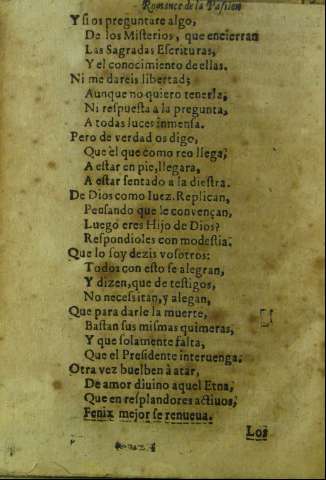 Romance de la Passion
Y si os preguntare algo,
De los Misterios, que encierran
Las Sagradas Escrituras,
Y el conocimiento de ellas.
Ni me dareis libertad;
Aunque no quiero tenerla;
Ni respuesta a la pregunta,
A todas luces inmensa.
Pero de verdad os digo,
Que el que como reo llega;
A estar en pie, llegara,
A estar sentado a la diestra.
De Dios como Iuez. Replican,
Pensando que le convençan,
Luego eres Hijo de Dios?
Respondioles con modestia;
Que lo soy dezis vosotros:
Todos con esto se alegran,
Y dizen, que de testigos,
No necessitan, y alegan,
Que para darle la muerte,
Bastan sus mismas quimeras,
Y que solamente falta,
Que el Presidente interuenga.
Otra vez buelben à atar,
De amor diuino aquel Etna,
Que en resplandores actiuos,
Fenix mejor se renueua.
Los